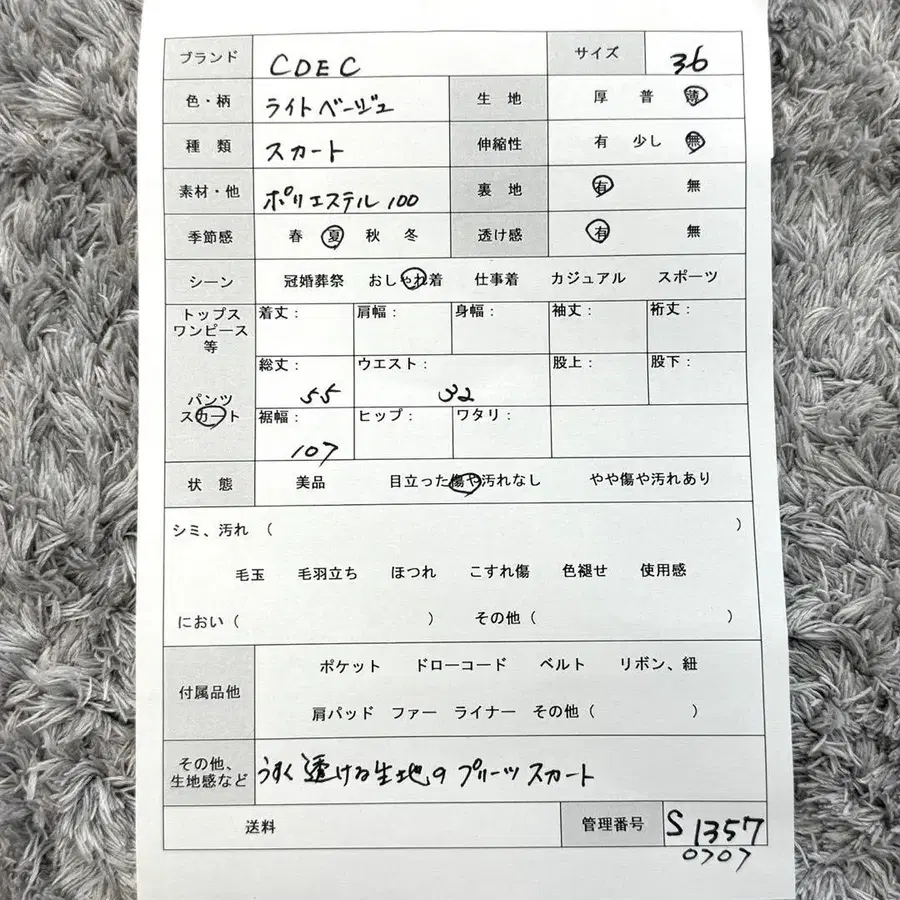 ブランド CDEC サイズ 36
色・柄 ライトベージュ 生地 厚 普 薄
種類 スカート 伸縮性 有 少し 無
素材・他 ポリエステル 100 裏地 有 無
季節感 春 夏 秋 冬 透け感 有 無
シーン 冠婚葬祭 おしゃれ着 仕事着 カジュアル スポーツ
トップス
ワンピース
等
着丈: 肩幅: 身幅: 袖丈: 裄丈:
総丈: ウエスト: 股上: 股下:
55 32
パンツ
スカート
裾幅: ヒップ: ワタリ:
107
状態 美品 目立った傷や汚れなし やや傷や汚れあり
シミ、汚れ ( )
毛玉 毛羽立ち ほつれ こすれ傷 色褪せ 使用感
におい ( ) その他 ( )
付属品他 ポケット ドローコード ベルト リボン、紐
肩パッド ファー ライナー その他 ( )
その他、
生地感など
うすく透ける生地のプリーツスカート
送料 管理番号 S 1357
0707